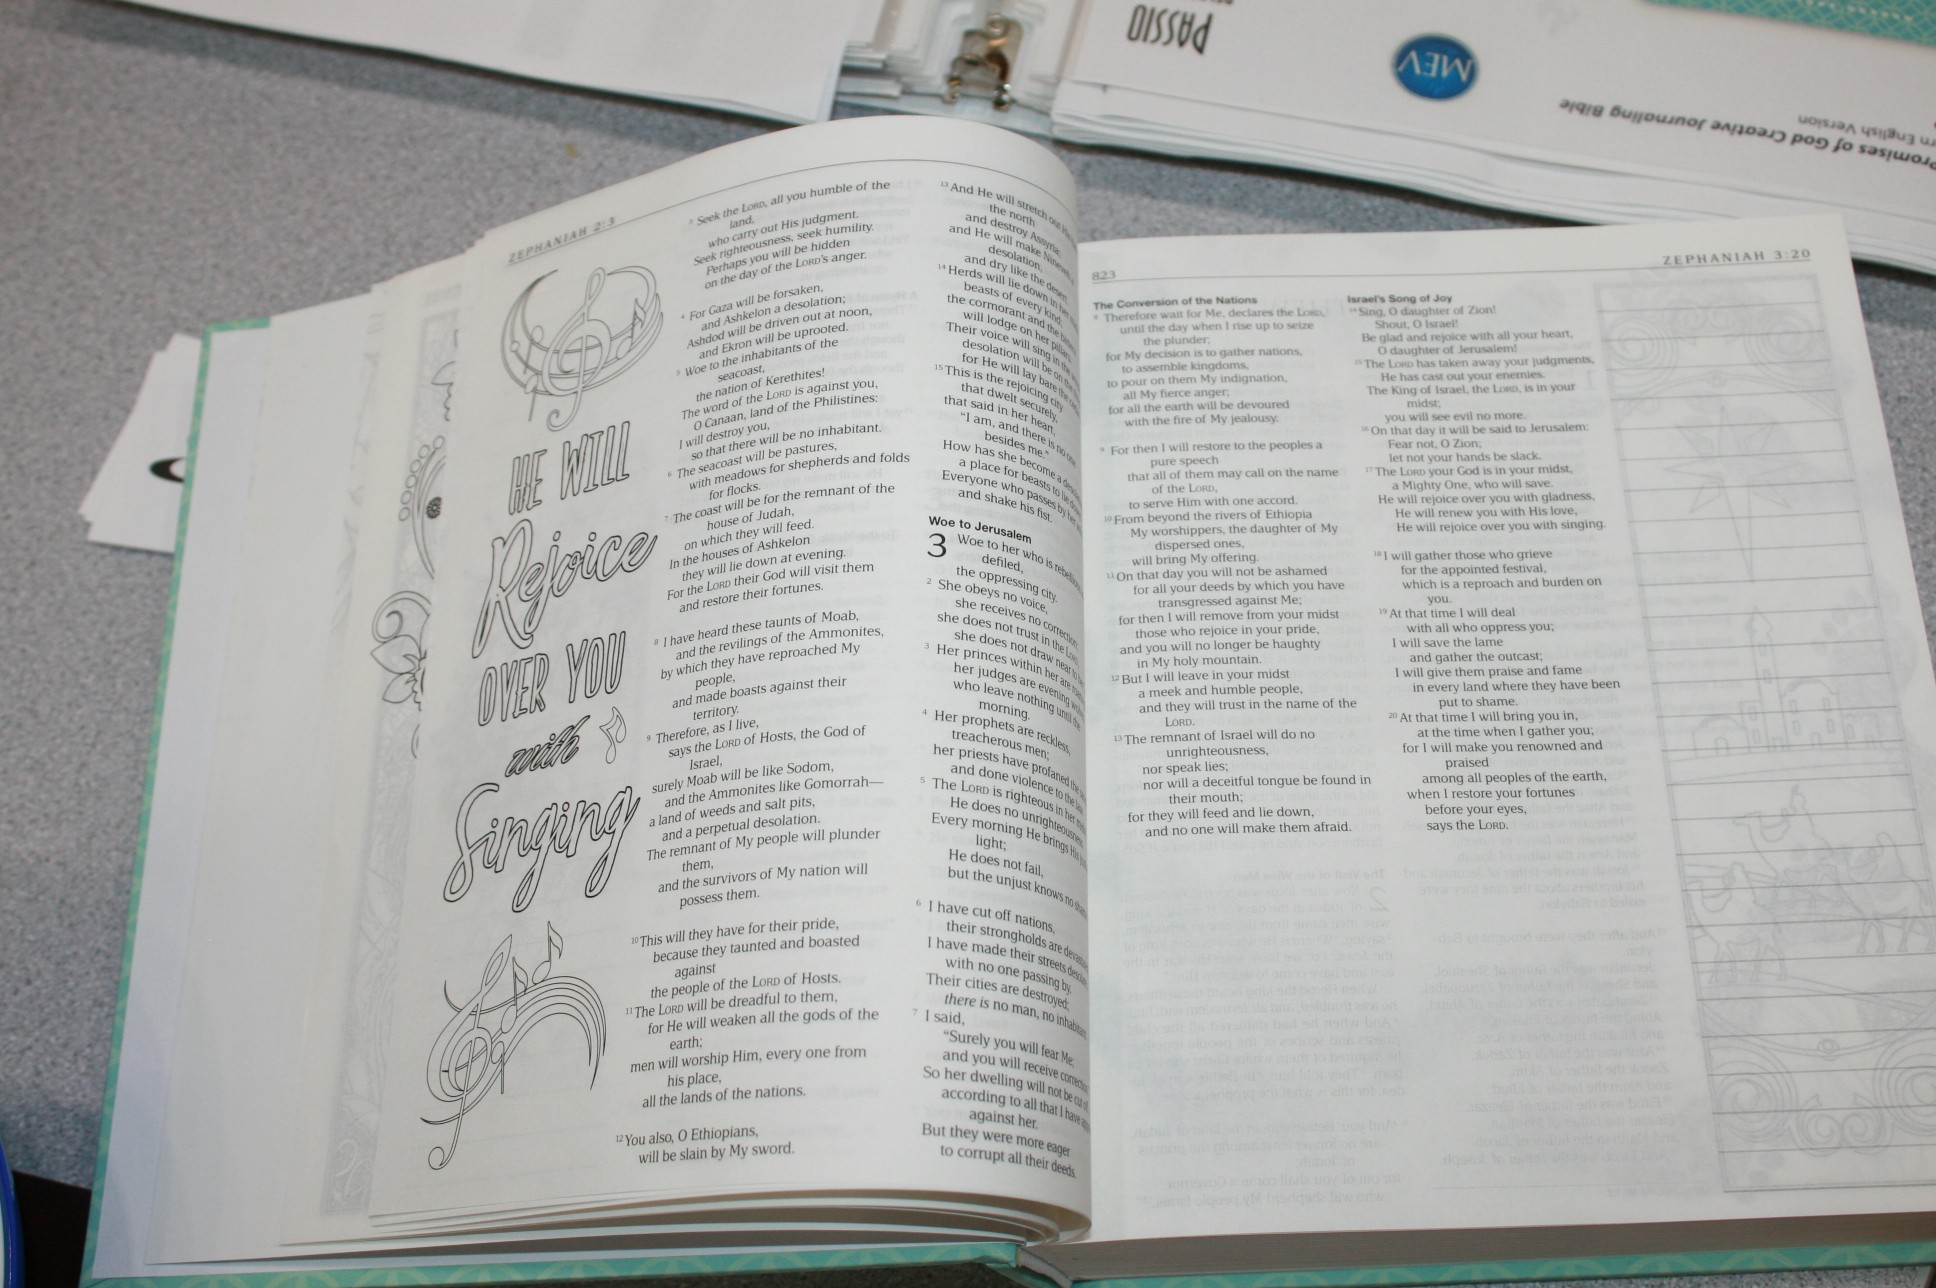 PASSIO
MEV
Promises of God Creative Journaling Bible
English Version
ZEPHANIAH 2:3
HE WILL
Rejoice
OVER YOU
with
Singing
3 Seek the LORD, all you humble of the
land,
who carry out His judgment.
Seek righteousness, seek humility.
Perhaps you will be hidden
on the day of the LORD's anger.
4 For Gaza will be forsaken,
and Ashkelon a desolation;
Ashdod will be driven out at noon,
and Ekron will be uprooted.
5 Woe to the inhabitants of the
seacoast,
the nation of Kerethites!
The word of the LORD is against you,
O Canaan, land of the Philistines:
I will destroy you,
so that there will be no inhabitant.
6 The seacoast will be pastures,
with meadows for shepherds and folds
for flocks.
7 The coast will be for the remnant of the
house of Judah,
on which they will feed.
In the houses of Ashkelon
they will lie down at evening.
For the LORD their God will visit them
and restore their fortunes.
8 I have heard these taunts of Moab,
and the revilings of the Ammonites,
by which they have reproached My
people,
and made boasts against their
territory.
9 Therefore, as I live,
says the LORD of Hosts, the God of
Israel,
surely Moab will be like Sodom,
and the Ammonites like Gomorrah—
a land of weeds and salt pits,
and a perpetual desolation.
The remnant of My people will plunder
them,
and the survivors of My nation will
possess them.
10 This will they have for their pride,
because they taunted and boasted
against
the people of the LORD of Hosts.
11 The LORD will be dreadful to them,
for He will weaken all the gods of the
earth;
men will worship Him, every one from
his place,
all the lands of the nations.
12 You also, O Ethiopians,
will be slain by My sword.
13 And He will stretch out
the north
and destroy Assyria;
and He will make Nineveh
desolation,
and dry like the desert.
14 Herds will lie down in her
beasts of every kind;
the cormorant and the
will lodge on her pillars.
Their voice will sing in the
desolation will be on the
for He will lay bare the
15 This is the rejoicing city
that dwelt securely,
that said in her heart,
“I am, and there is no one
besides me.”
How has she become a
a place for beasts to lie
Everyone who passes by her
and shake his fist.
Woe to Jerusalem
3 Woe to her who is rebellious
defiled,
the oppressing city.
2 She obeys no voice,
she receives no correction;
she does not trust in the LORD,
she does not draw near to
3 Her princes within her are
her judges are evening
who leave nothing until the
morning.
4 Her prophets are reckless,
treacherous men;
her priests have profaned the
and done violence to the
5 The LORD is righteous in her
He does no unrighteousness.
Every morning He brings His
light;
He does not fail,
but the unjust knows no
6 I have cut off nations,
their strongholds are
I have made their streets
with no one passing by.
Their cities are destroyed;
there is no man, no
7 I said,
“Surely you will fear Me;
and you will receive correction
So her dwelling will not be cut
according to all that I have
against her.
But they were more eager
to corrupt all their deeds.
823
ZEPHANIAH 3:20
The Conversion of the Nations
8 Therefore wait for Me, declares the LORD,
until the day when I rise up to seize
the plunder;
for My decision is to gather nations,
to assemble kingdoms,
to pour on them My indignation,
all My fierce anger;
for all the earth will be devoured
with the fire of My jealousy.
9 For then I will restore to the peoples a
pure speech
that all of them may call on the name
of the LORD,
to serve Him with one accord.
10 From beyond the rivers of Ethiopia
My worshippers, the daughter of My
dispersed ones,
will bring My offering.
11 On that day you will not be ashamed
for all your deeds by which you have
transgressed against Me;
for then I will remove from your midst
those who rejoice in your pride,
and you will no longer be haughty
in My holy mountain.
12 But I will leave in your midst
a meek and humble people,
and they will trust in the name of the
LORD.
13 The remnant of Israel will do no
unrighteousness,
nor speak lies;
nor will a deceitful tongue be found in
their mouth;
for they will feed and lie down,
and no one will make them afraid.
Israel's Song of Joy
14 Sing, O daughter of Zion!
Shout, O Israel!
Be glad and rejoice with all your heart,
O daughter of Jerusalem!
15 The LORD has taken away your judgments,
He has cast out your enemies.
The King of Israel, the LORD, is in your
midst;
you will see evil no more.
16 On that day it will be said to Jerusalem:
Fear not, O Zion;
let not your hands be slack.
17 The LORD your God is in your midst,
a Mighty One, who will save.
He will rejoice over you with gladness,
He will renew you with His love,
He will rejoice over you with singing.
18 I will gather those who grieve
for the appointed festival,
which is a reproach and burden on
you.
19 At that time I will deal
with all who oppress you;
I will save the lame
and gather the outcast;
I will give them praise and fame
in every land where they have been
put to shame.
20 At that time I will bring you in,
at the time when I gather you;
for I will make you renowned and
praised
among all peoples of the earth,
when I restore your fortunes
before your eyes,
says the LORD.